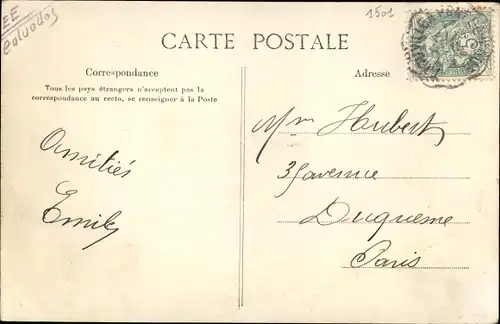 EE
Calvados
1501
CARTE POSTALE
Correspondance
Tous les pays étrangers n'acceptent pas la
correspondance au recto, se renseigner à la Poste
Amitiés
Emile
Adresse
Mr Hubert
39 avenue
Duquesne
Paris